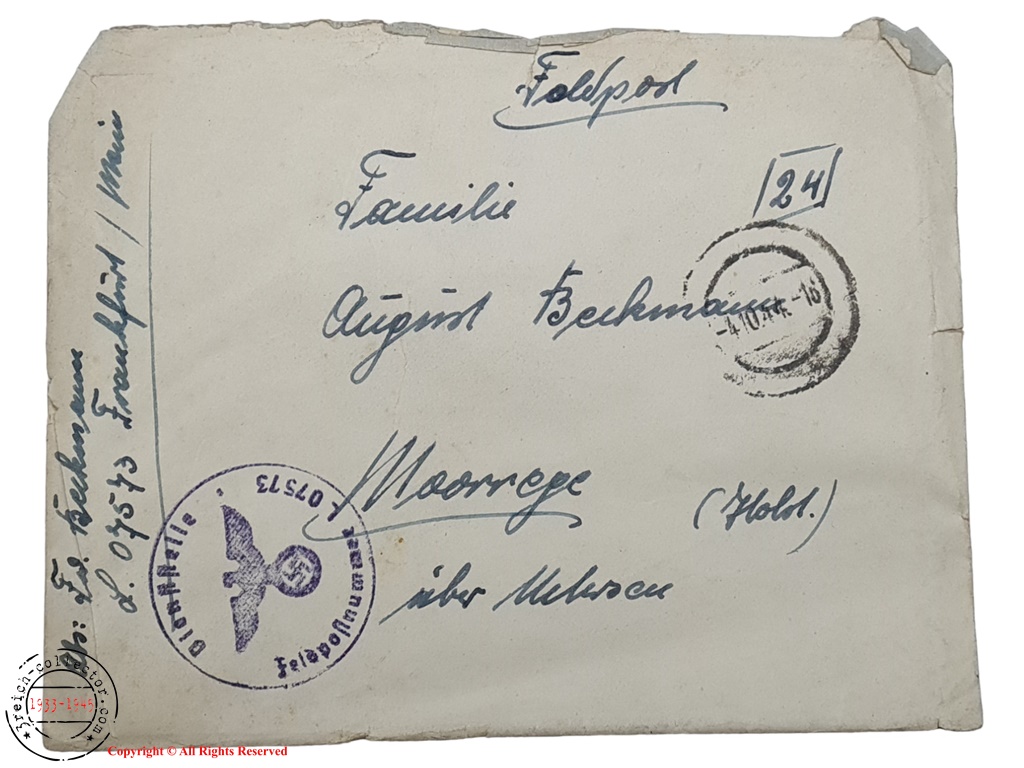 Feldpost
Familie
[24]
August Beckmann
-4.10.44.-18
Moorrege
(Holst.)
über Uetersen
Abs: Ed. Beckmann
L. 07573 Frankfurt / Main
Dienststelle
Feldpostnummer L 07573
3reich-collector.com
1933-1945
Copyright © All Rights Reserved